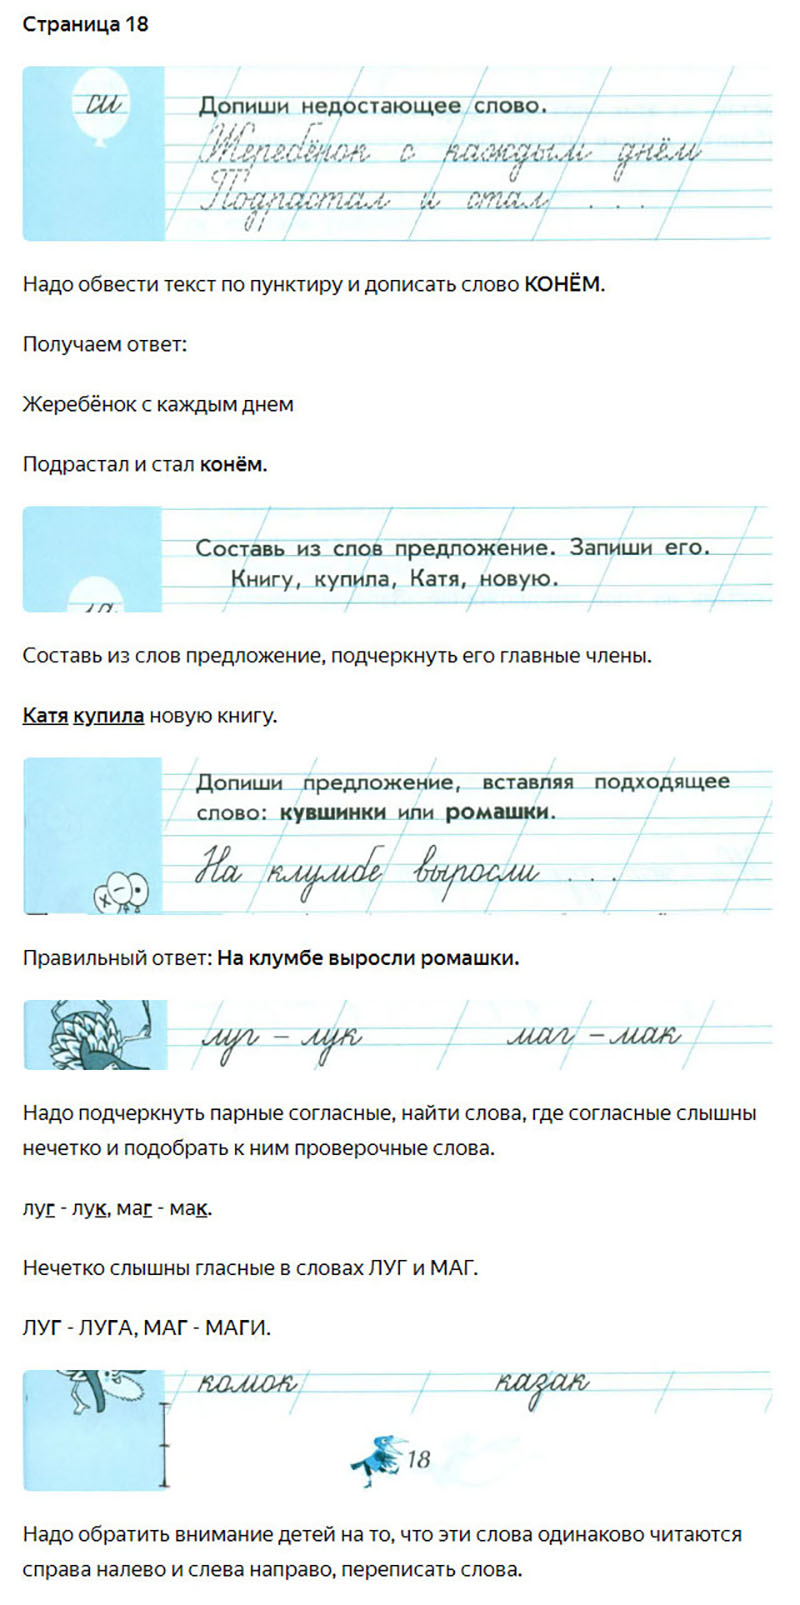 Страница 18
си
Допиши недостающее слово.
Жеребёнок с каждым днём
Подрастал и стал . . .
Надо обвести текст по пунктиру и дописать слово КОНЁМ.
Получаем ответ:
Жеребёнок с каждым днем
Подрастал и стал конём.
Составь из слов предложение. Запиши его.
Книгу, купила, Катя, новую.
Составь из слов предложение, подчеркнуть его главные члены.
Катя купила новую книгу.
Допиши предложение, вставляя подходящее
слово: кувшинки или ромашки.
На клумбе выросли . . .
Правильный ответ: На клумбе выросли ромашки.
луг – лук маг – мак
Надо подчеркнуть парные согласные, найти слова, где согласные слышны
нечетко и подобрать к ним проверочные слова.
луг - лук, маг - мак.
Нечетко слышны гласные в словах ЛУГ и МАГ.
ЛУГ - ЛУГА, МАГ - МАГИ.
комок казак
18
Надо обратить внимание детей на то, что эти слова одинаково читаются
справа налево и слева направо, переписать слова.